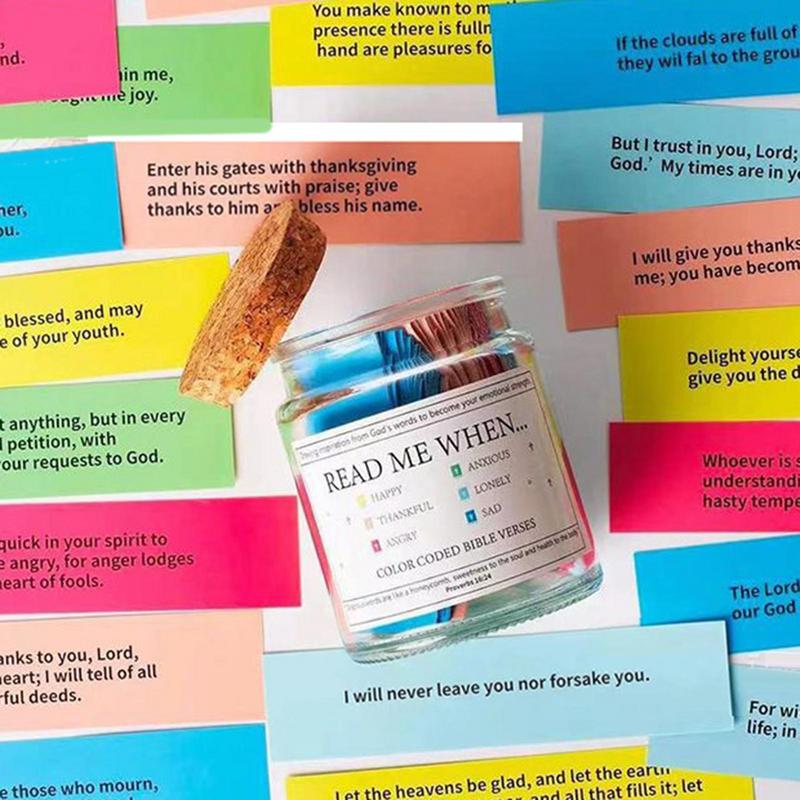 nd.
in me,
me joy.
You make known to m
presence there is fulln
hand are pleasures fo
If the clouds are full of
they wil fal to the grou
But I trust in you, Lord;
God.' My times are in yo
her,
ou.
Enter his gates with thanksgiving
and his courts with praise; give
thanks to him an bless his name.
I will give you thanks
me; you have becom
blessed, and may
e of your youth.
Delight yourse
give you the d
t anything, but in every
petition, with
our requests to God.
Whoever is s
understandi
hasty tempe
Drawing inspiration from God's words to become your emotional strength
READ ME WHEN...
HAPPY
THANKFUL
ANGRY
ANXIOUS
LONELY
SAD
COLOR CODED BIBLE VERSES
words are like a honeycomb, sweetness to the soul and health to the body
Proverbs 16:24
quick in your spirit to
e angry, for anger lodges
heart of fools.
The Lord
our God
anks to you, Lord,
heart; I will tell of all
rful deeds.
I will never leave you nor forsake you.
For wi
life; in
e those who mourn,
Let the heavens be glad, and let the earth
and all that fills it; let